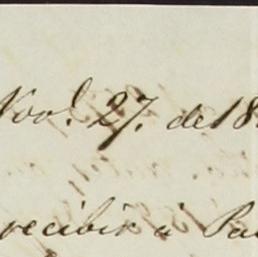 Nov. 27. de 18
recibir á Pa